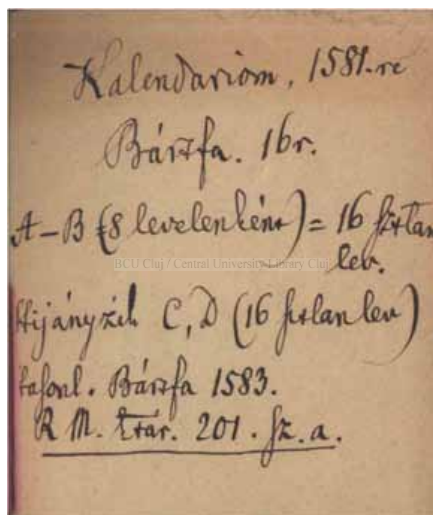 Kalendariom, 1581-re
Bártfa. 16r.
A–B (8 levelenként) = 16 sztlan
lev.
BCU Cluj / Central University Library Cluj
Hijányzik C, D (16 sztlan lev)
hasonl. Bártfa 1583.
R M. Ktár. 201. sz. a.